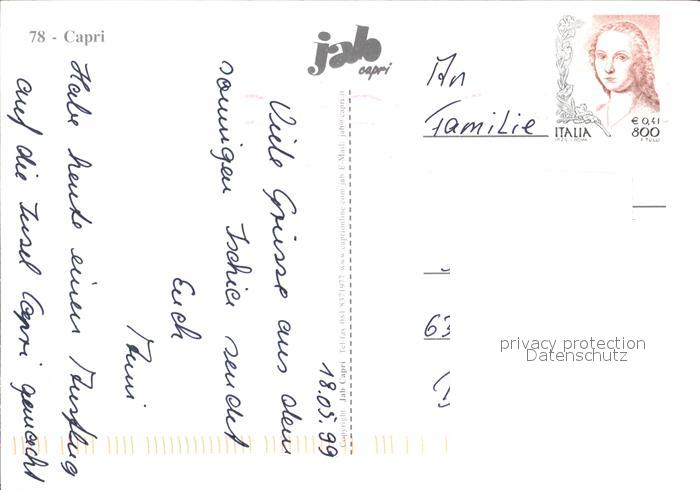 78 - Capri
jab
capri
18.05.99
Viele Grüsse aus dem
sonnigen Ischia sendet
Euch
Anni
Habe heute einen Ausflug
auf die Insel Capri gemacht
Copyright Jab Capri Tel fax 081 8371977 www.caprionline.com/jab E-Mail: jab@capri.it
An
Familie
63
ITALIA
€ 0,41
800
privacy protection
Datenschutz